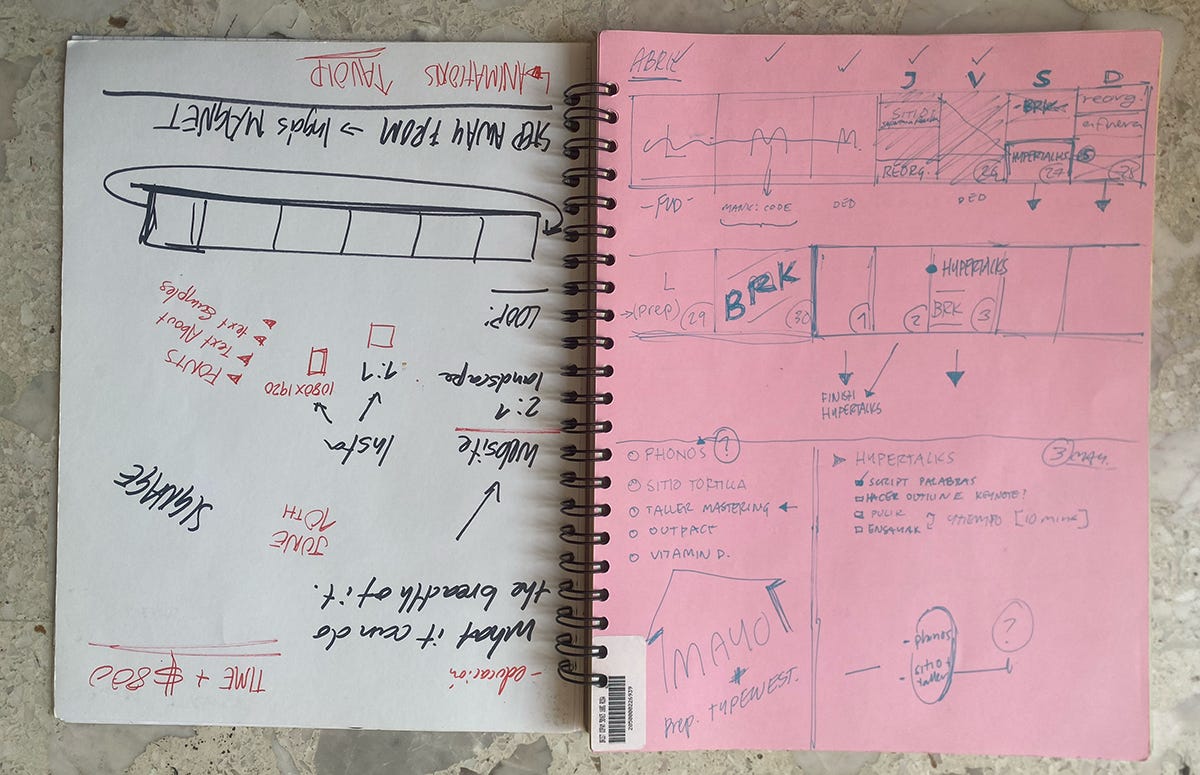 - educación
TIME + $800
What it can do
the breadth of it.
JUNE
10TH
SIGNAGE
Website
2:1
landscape
Insta
1:1
1080x1920
FONTS
Text About
text Examples
LOOP:
STEP AWAY FROM → MAGNET
ANIMATIONS
ABRIL
J V S D
L M M
SITIO
BRK
reorg.
afuera
REORG.
26
HYPERTALKS
27
28
MANK: CODE
DED
DED
L
→(prep) 29
BRK 30
1
2
HYPERTALKS
BRK 3
FINISH
HYPERTALKS
PHONOS ?
SITIO TORTILLA
TALLER MASTERING ←
OUTPACE
VITAMIN D.
HYPERTALKS
3 MAY.
SCRIPT PALABRAS
HACER OUTLINE KEYNOTE?
PULIR
ENSAYAR
TIEMPO [10 MINS]
MAYO
*
prep. TYPEWEST.
- phonos
sitio +
- taller
?
2050000026929